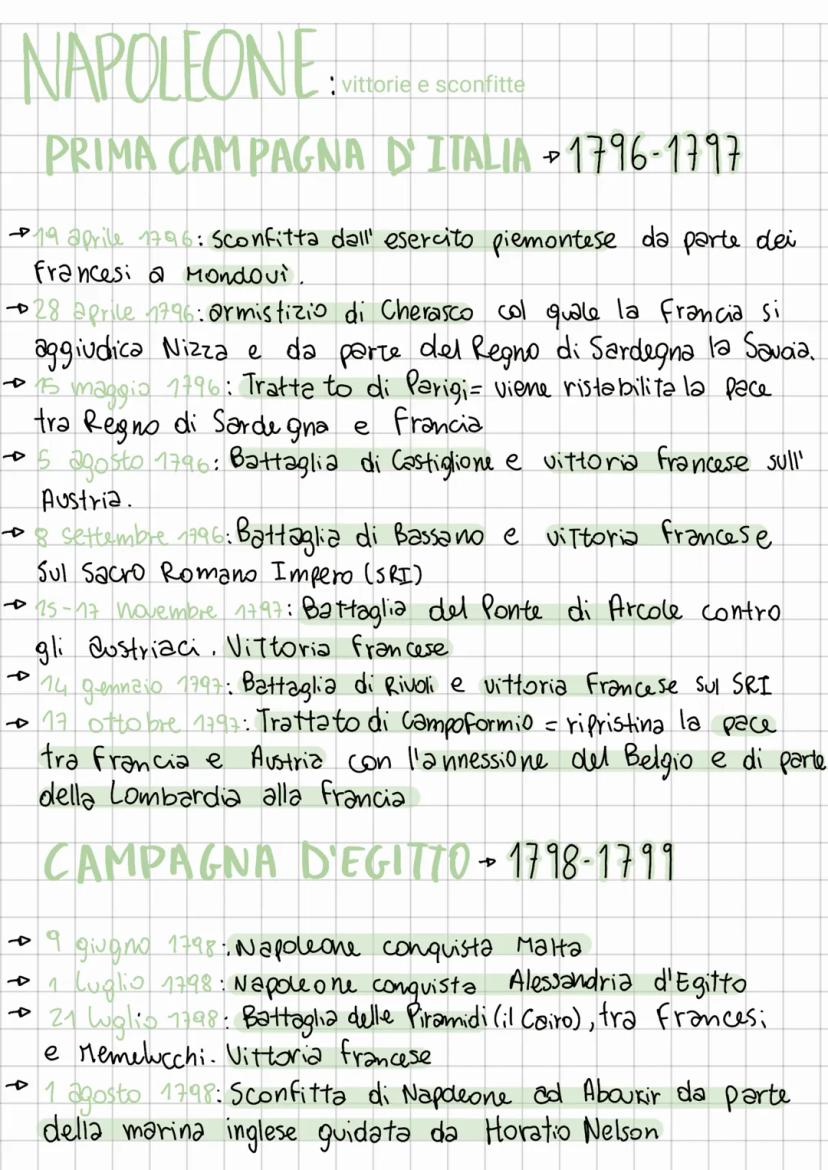 NAPOLEONE: vittorie e sconfitte
PRIMA CAMPAGNA D'ITALIA → 1796-1797
→ 19 aprile 1796: sconfitta dall' esercito piemontese da parte dei
francesi a Mondovì.
→ 28 aprile 1796: armistizio di Cherasco col quale la Francia si
aggiudica Nizza e da parte del Regno di Sardegna la Savoia.
→ 15 maggio 1796: Trattato di Parigi= viene ristabilita la pace
tra Regno di Sardegna e Francia
→ 5 agosto 1796: Battaglia di Castiglione e vittoria francese sull'
Austria.
→ 8 settembre 1796: Battaglia di Bassano e vittoria francese
sul Sacro Romano Impero (SRI)
→ 15-17 novembre 1797: Battaglia del Ponte di Arcole contro
gli austriaci. Vittoria francese
→ 14 gennaio 1797: Battaglia di Rivoli e vittoria Francese sul SRI
→ 17 ottobre 1797: Trattato di Campoformio = ripristina la pace
tra Francia e Austria con l'annessione del Belgio e di parte
della Lombardia alla Francia
CAMPAGNA D'EGITTO → 1798-1799
→ 9 giugno 1798: Napoleone conquista Malta
→ 1 Luglio 1798: Napoleone conquista Alessandria d'Egitto
→ 21 luglio 1798: Battaglia delle Piramidi (il Cairo), tra Francesi
e Memelucchi. Vittoria francese
→ 1 agosto 1798: Sconfitta di Napoleone ad Aboukir da parte
della marina inglese guidata da Horatio Nelson